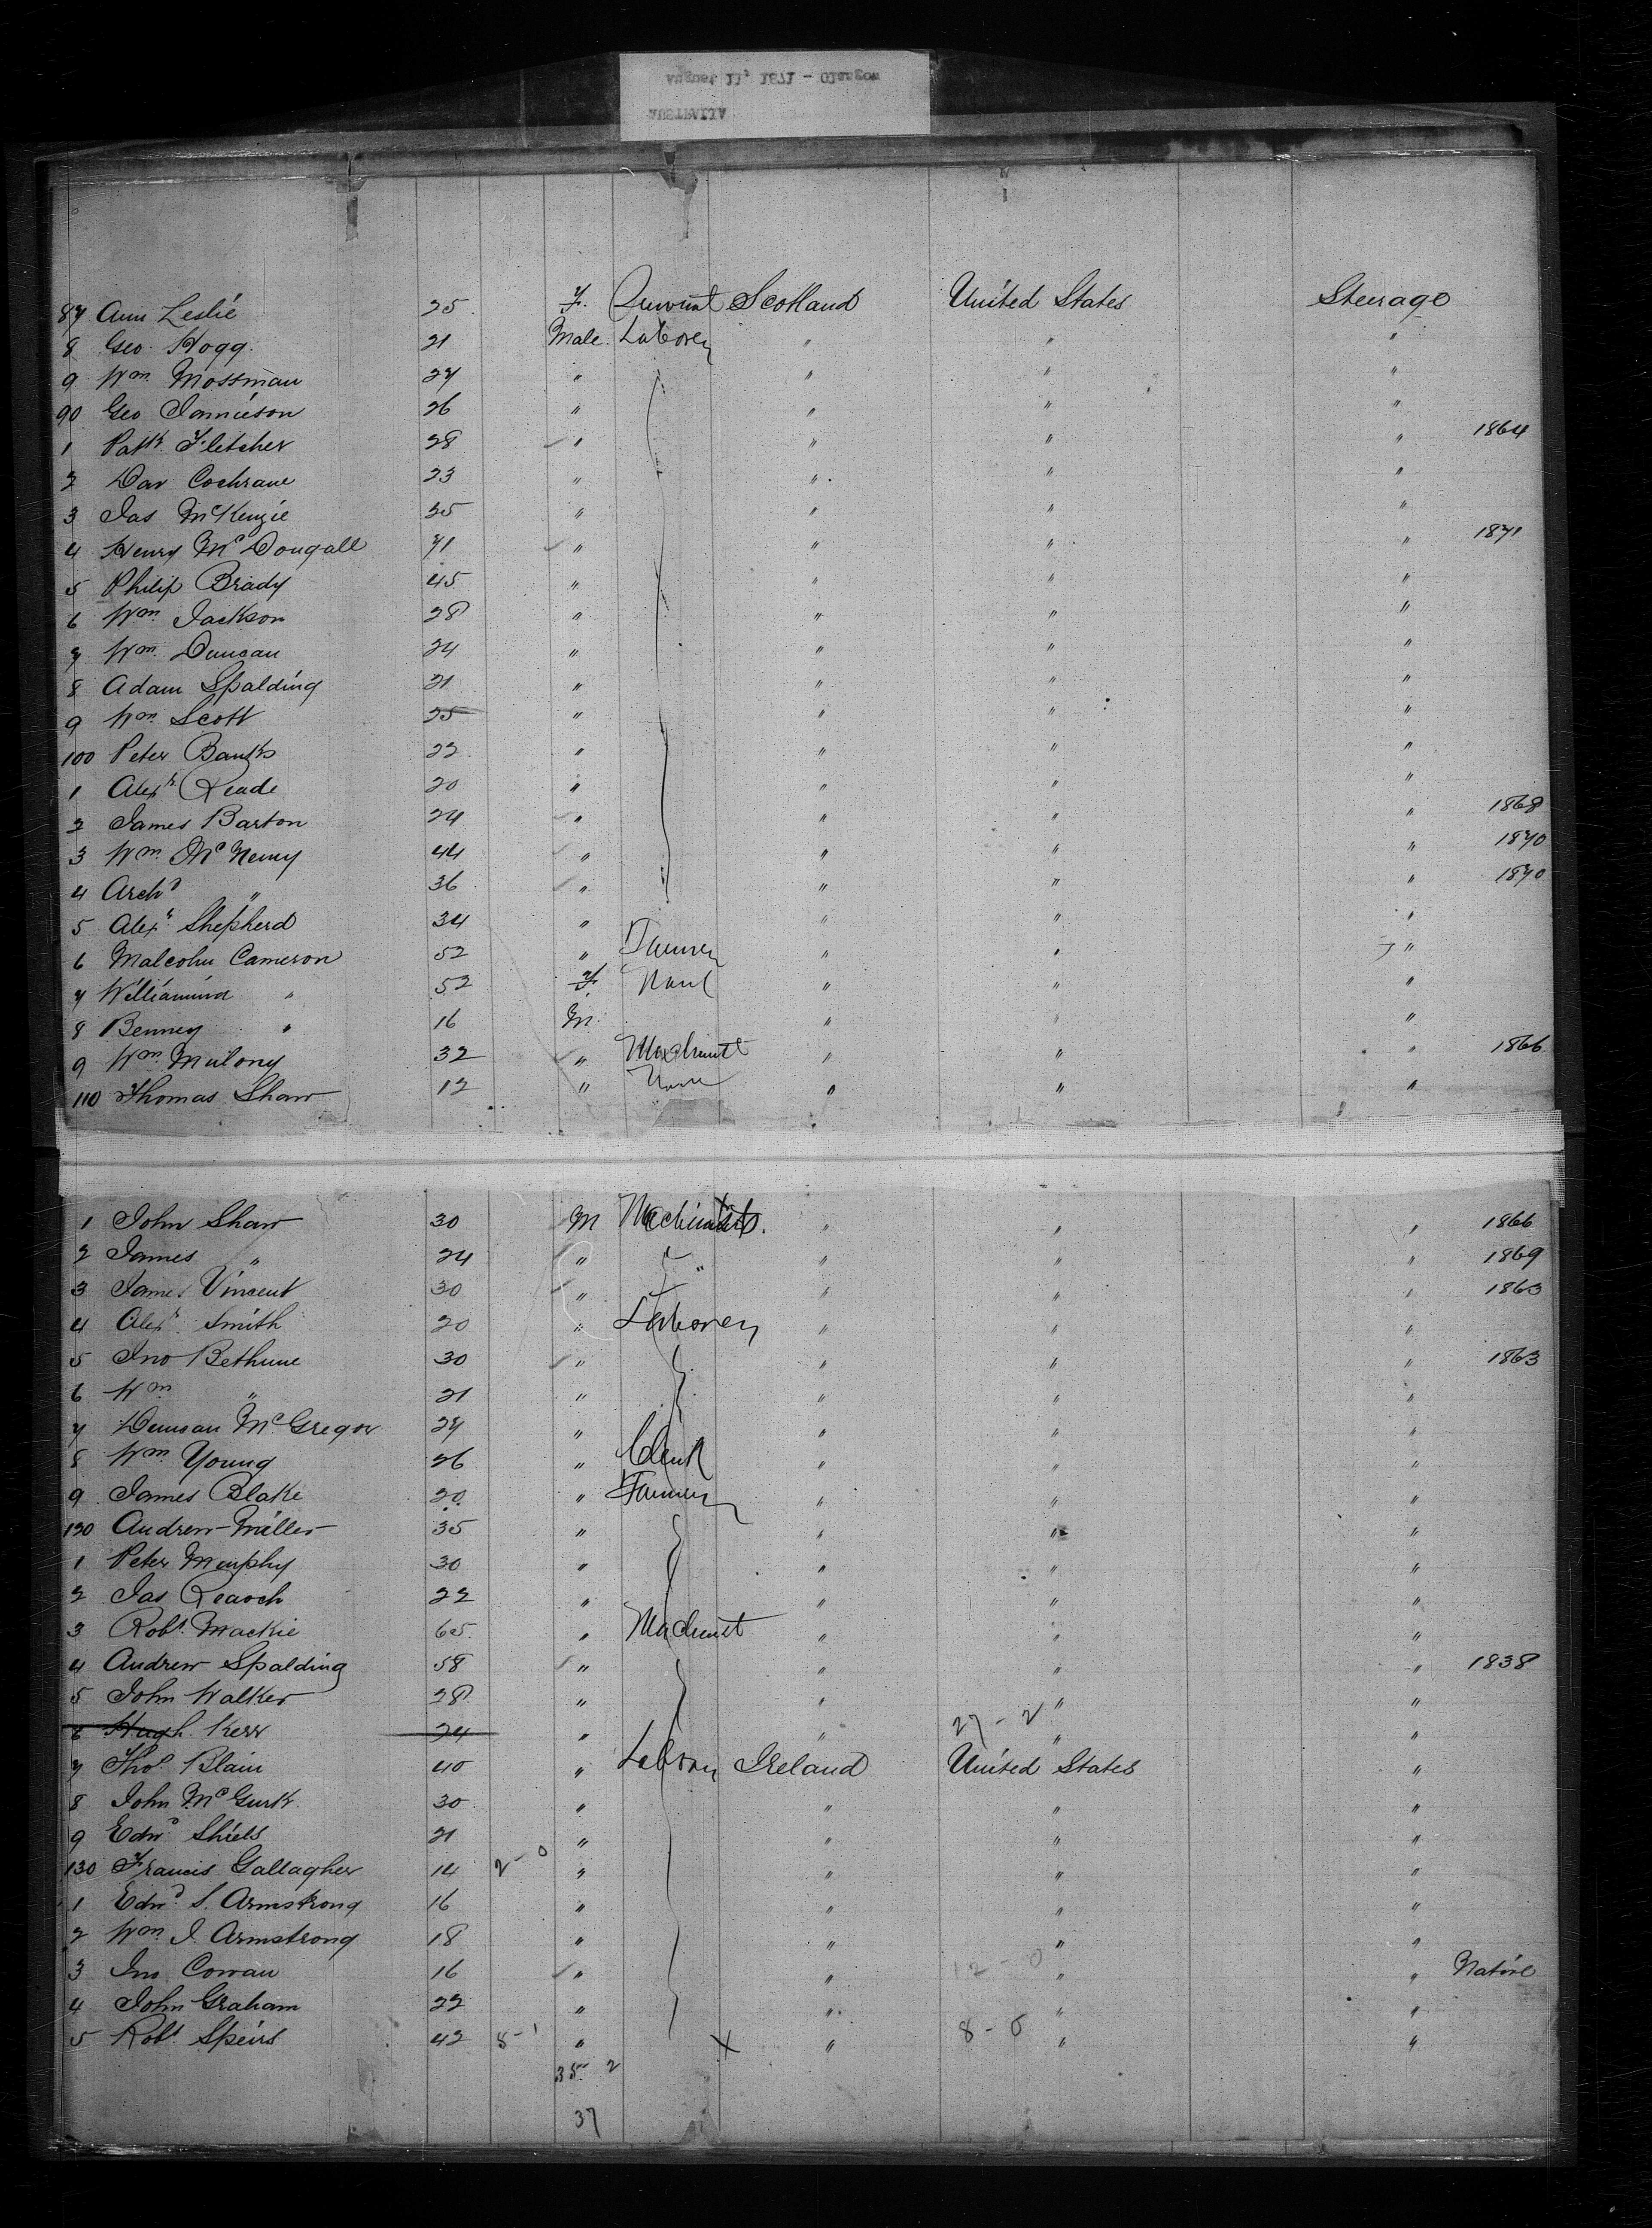 August 11, 1871 - Glasgow
AUSTRALIA
87 Ann Leslie 25 F. Servant Scotland United States Steerage
8 Geo. Hogg. 21 Male. Laborer " " "
9 Wm. Mossman 27 " " " "
90 Geo Jamieson 26 " " " "
1 Patk. Fletcher 28 " " " " 1864
2 Dav Cochrane 23 " " " "
3 Jas McKenzie 25 " " " "
4 Henry McDougall 71 " " " " 1871
5 Philip Brady 45 " " " "
6 Wm. Jackson 28 " " " "
7 Wm. Duncan 24 " " " "
8 Adam Spalding 21 " " " "
9 Wm. Scott 25 " " " "
100 Peter Banks 22 " " " "
1 Alexr Reade 20 " " " "
2 James Barton 24 " " " " 1868
3 Wm. McNemy 44 " " " " 1870
4 Archd " 36 " " " " 1870
5 Alexr Shepherd 34 " " " "
6 Malcolm Cameron 52 " Farmer " " "
7 Williamina " 52 F. None " " "
8 Benney " 16 M. " " "
9 Wm. Mulony 32 " Machinist " " " 1866
110 Thomas Shaw 12 " None " " "
1 John Shaw 30 M Machinists. " " " 1866
2 James " 24 " " " " " 1869
3 James Vincent 30 " " " " 1863
4 Alexr Smith 20 " Laborer " " "
5 Jno Bethune 30 " " " " 1863
6 Wm " 21 " " " "
7 Duncan McGregor 27 " " " "
8 Wm. Young 26 " Clerk " " "
9 James Blake 20 " Farmer " " "
120 Andrew Miller 35 " " " "
1 Peter Murphy 30 " " " "
2 Jas Reaoch 22 " " " "
3 Robt. Mackie 65 " Machinist " " "
4 Andrew Spalding 58 " " " " 1838
5 John Walker 28 " " " "
6 Hugh Kerr 24 " " 27 - 2 " "
7 Thos Blain 40 " Laborer Ireland United States "
8 John McGurk 30 " " " "
9 Edwd Shiels 21 " " " "
130 Francis Gallagher 14 2 - 0 " " " "
1 Edwd S. Armstrong 16 " " " "
2 Wm J. Armstrong 18 " " " "
3 Jno Cowan 16 " " 12 - 0 " " Native
4 John Graham 22 " " " "
5 Robt. Speirs 42 8 - 1 " X " 8 - 0 " "
35 2
37